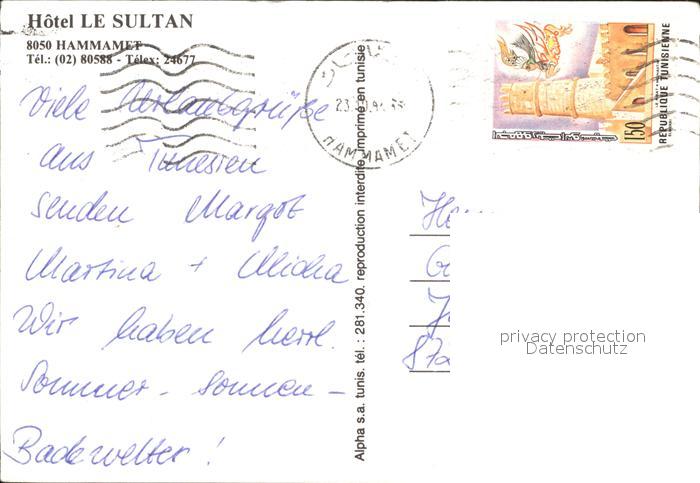 Hôtel LE SULTAN
8050 HAMMAMET
Tél.: (02) 80588 - Télex: 24677
Viele Urlaubsgrüße
aus Tunesien
senden Margot
Martina + Micha
Wir haben herrl.
Sommer- Sonnen-
Badewetter!
Alpha s.a. tunis. tél. : 281.340. reproduction interdite. imprimé en tunisie
HAMMAMET
REPUBLIQUE TUNISIENNE
150
privacy protection
Datenschutz